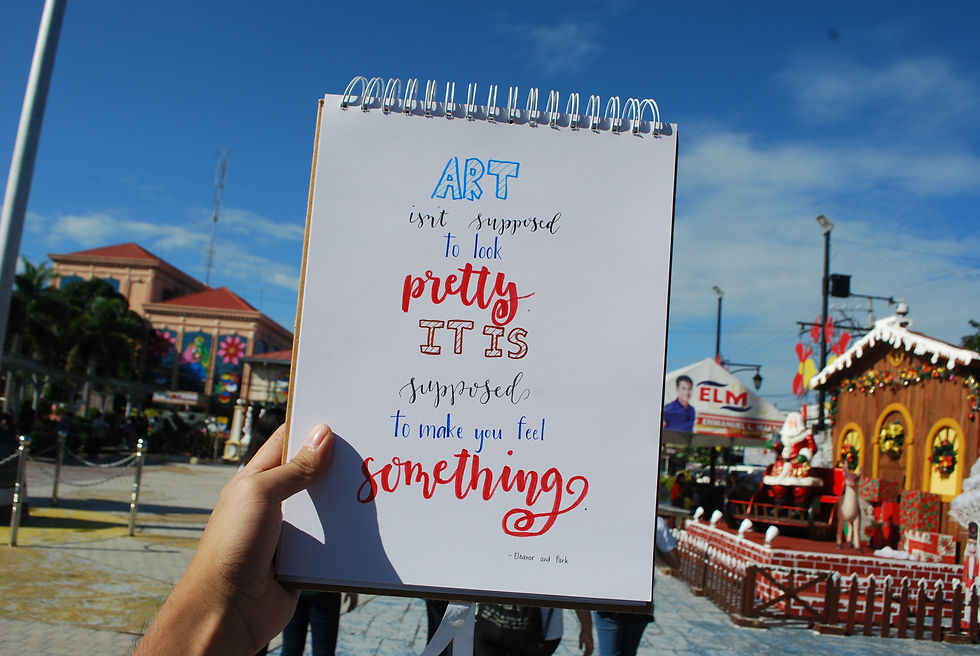 ART
isn't supposed
to look
pretty
IT IS
supposed
to make you feel
something
- Eleanor and Park
ELM
EMMANUEL L.